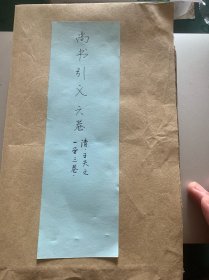 尚书引义六卷
清·王夫之
一至三卷